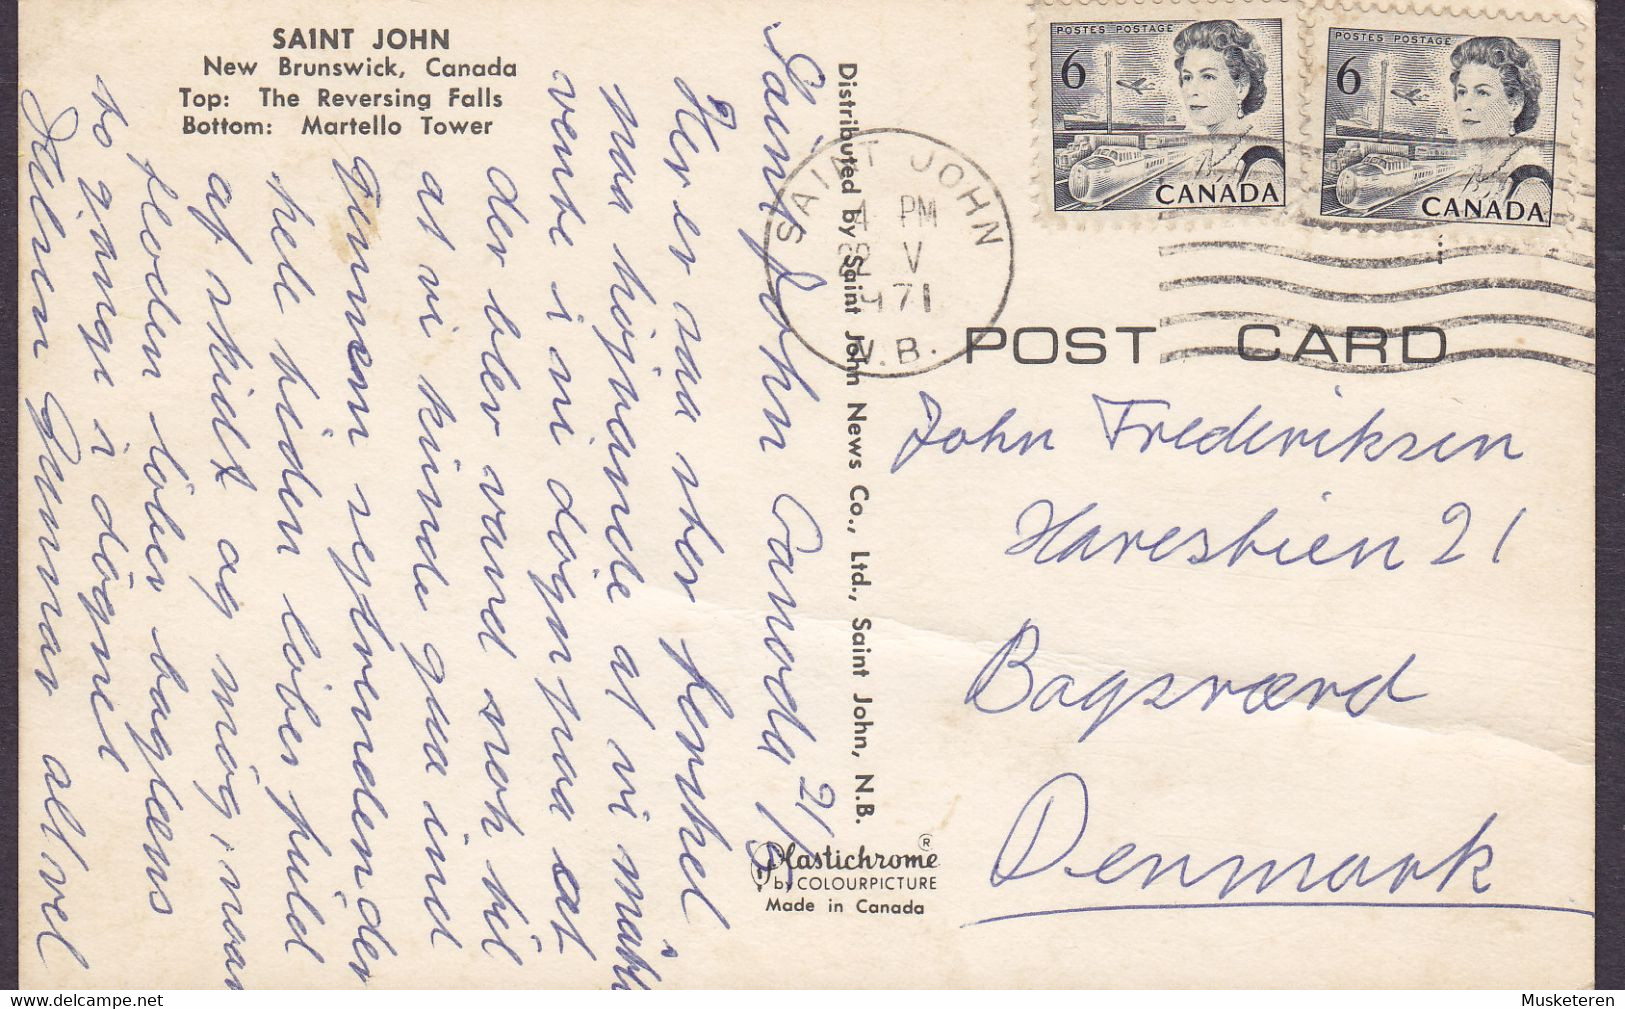 SAINT JOHN
New Brunswick, Canada
Top: The Reversing Falls
Bottom: Martello Tower
Saint John Canada 21/5
Her er saa stor forskel
maa højvande at vi maatte
vente i mi døgn paa at
der blev vand nok til
at vi kunde gaa ind
Tømmeret der
hele tiden løber fuld
af skidt og møg, naar
floden løber baglæns
to gange i døgnet
Hilsen Gunnar
Distributed by Saint John News Co., Ltd., Saint John, N.B.
Plastichrome ®
by COLOURPICTURE
Made in Canada
POSTES POSTAGE
6
CANADA
POSTES POSTAGE
6
CANADA
SAINT JOHN
4 PM
V
1971
N.B.
POST CARD
John Frederiksen
Harestien 21
Bagsværd
Denmark
Musketeren